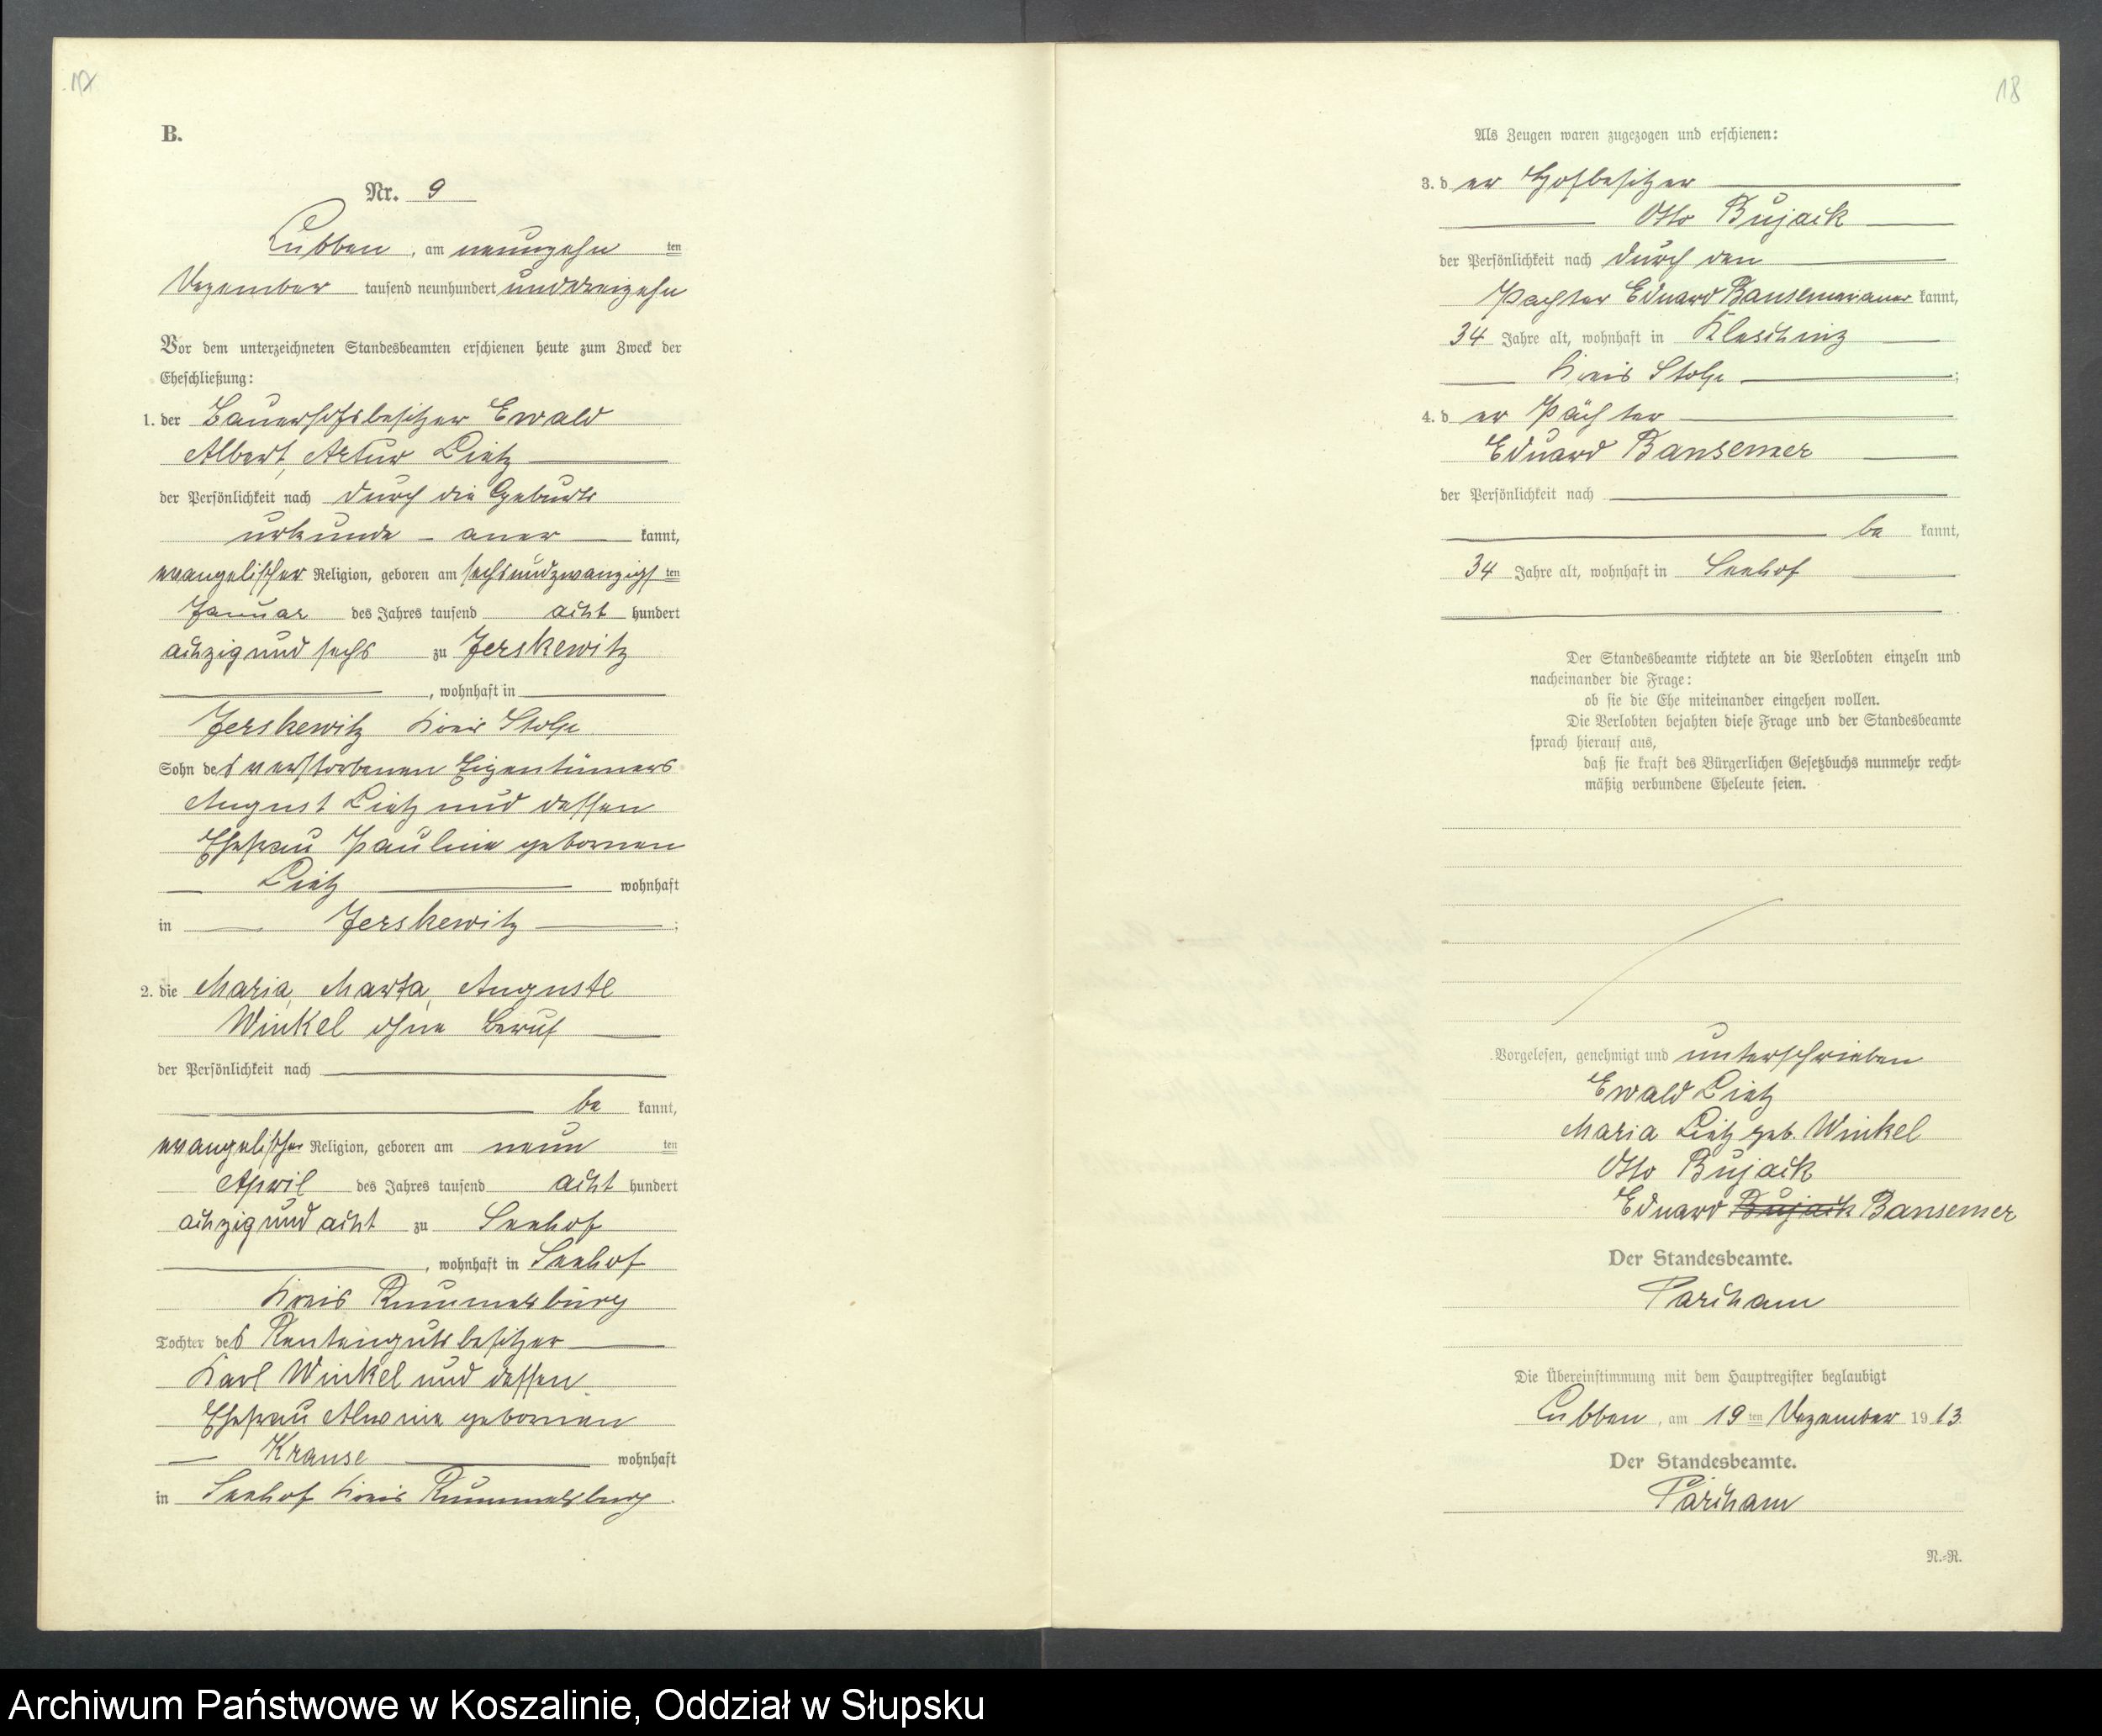 17
B.
Nr. 9
Lubben, am neunzehn ten
Dezember tausend neunhundert unddreizehn
Vor dem unterzeichneten Standesbeamten erschienen heute zum Zweck der
Eheschließung:
1. der Bauerhofsbesitzer Ewald
Albert, Artur Lietz
der Persönlichkeit nach durch die Geburts
urkunde - aner kannt,
evangelischer Religion, geboren am sechsundzwanzigsten
Januar des Jahres tausend acht hundert
achzig und sechs zu Jerskewitz
, wohnhaft in
Jerskewitz Kreis Stolp.
Sohn des verstorbenen Eigentümers
August Lietz und dessen
Ehefrau Pauline gebornen
Lietz wohnhaft
in Jerskewitz ;
2. die Maria, Marta, Auguste
Winkel ohne Beruf
der Persönlichkeit nach
be kannt,
evangelischer Religion, geboren am neun ten
April des Jahres tausend acht hundert
achzig und acht zu Seehof
, wohnhaft in Seehof
Kreis Rummelsburg
Tochter des Rentengutsbesitzer
Karl Winkel und dessen
Ehefrau Alwine gebornen
Krause wohnhaft
in Seehof Kreis Rummelsburg.
18
Als Zeugen waren zugezogen und erschienen:
3. der Hofbesitzer
Otto Bujack
der Persönlichkeit nach durch den
Pachter Eduard Bansemer aner kannt,
34 Jahre alt, wohnhaft in Kleschinz
Kreis Stolp ;
4. der Pächter
Eduard Bansemer
der Persönlichkeit nach
be kannt,
34 Jahre alt, wohnhaft in Seehof
Der Standesbeamte richtete an die Verlobten einzeln und
nacheinander die Frage:
ob sie die Ehe miteinander eingehen wollen.
Die Verlobten bejahten diese Frage und der Standesbeamte
sprach hierauf aus,
daß sie kraft des Bürgerlichen Gesetzbuchs nunmehr recht-
mäßig verbundene Eheleute seien.
Vorgelesen, genehmigt und unterschrieben
Ewald Lietz
Maria Lietz geb. Winkel
Otto Bujack
Eduard Bujack Bansemer
Der Standesbeamte.
Parcham
Die Übereinstimmung mit dem Hauptregister beglaubigt
Lubben, am 19ten Dezember 1913.
Der Standesbeamte.
Parcham
N.-R.
Archiwum Państwowe w Koszalinie, Oddział w Słupsku